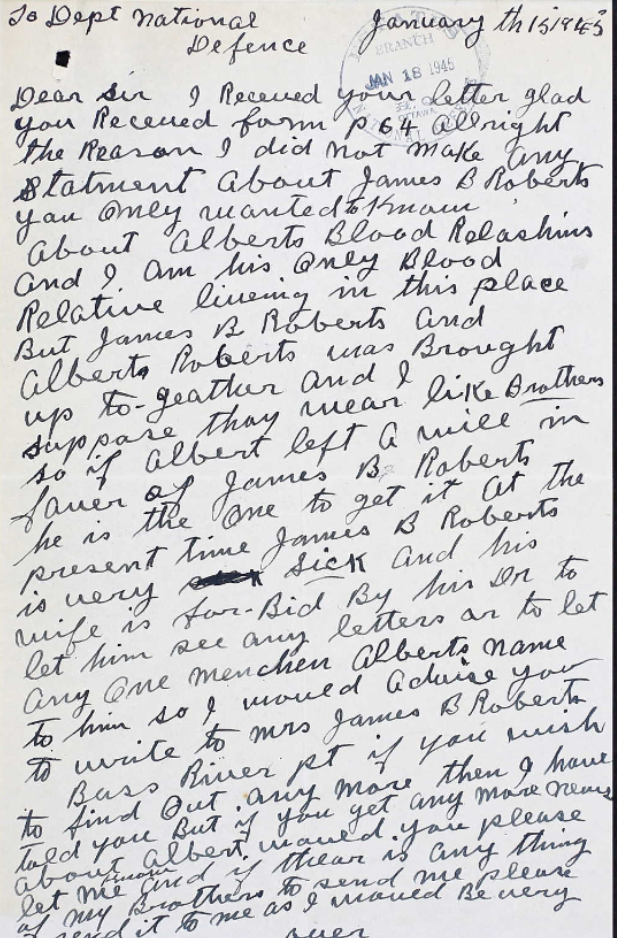 To Dept National January th 15 1945
Defence
ESTATES
BRANCH
JAN 18 1945
OTTAWA
NATIONAL
Dear Sir I Receued your letter glad
you Receued form P 64 allright
the Reason I did not make any
Statment About James B Roberts
you Only wanted to Know
About Alberts Blood Relashins
and I am his Only Blood
Relative liueing in this place
But James B Roberts and
Alberts Roberts was Brought
up to-geather and I
suppose thay wear like Brothers
so if Albert left a will in
fauer of James B Roberts
he is the One to get it at the
present time James B Roberts
is very sick and his
wife is for-Bid By his Dr to
let him see any letters or to let
any One menchen Alberts name
to him so I would aduise you
to write to mrs James B Roberts
Bass River pt if you wish
to find Out any more then I have
told you But if you get any more news
about Albert would you please
let me know and if thear is any thing
of my Brothers to send me please
send it to me as I would Be very
over